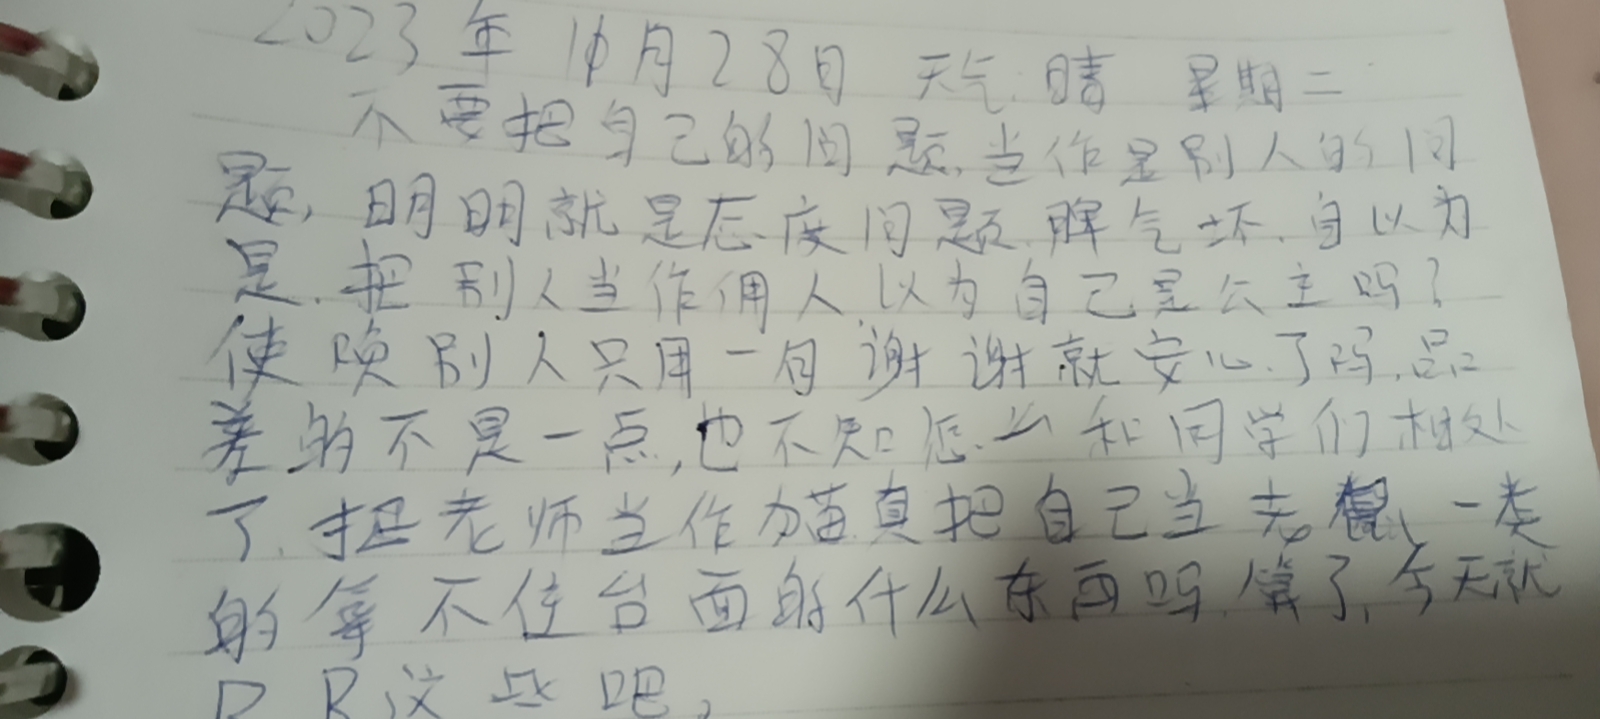 2023年10月28日 天气:晴 星期二
不要把自己的问题,当作是别人的问
题,明明就是态度问题.脾气坏.自以为
是.把别人当作佣人以为自己是公主吗?
使唤别人只用一句谢谢就安心了吗,品
差的不是一点,也不知怎么和同学们相处
了.把老师当作猫真把自己当老鼠、一类
的拿不住台面的什么东西吗.算了,今天就
P R这些吧,